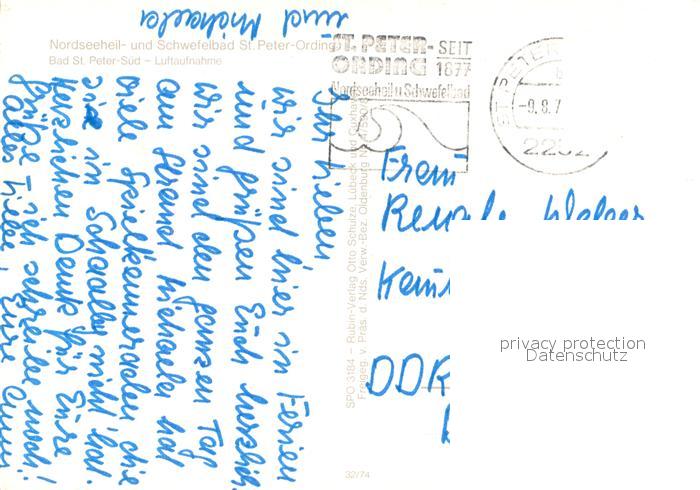 Nordseeheil- und Schwefelbad St. Peter-Ording
Bad St. Peter-Süd – Luftaufnahme
ST. PETER- SEIT
ORDING 1877
Nordseeheil u Schwefelbad
ST. PETER
-9.8.7
2252
Ihr Lieben,
wir sind hier in Ferien
und grüßen Euch herzlich,
wir sind den ganzen Tag
am Strand Michaela hat
viele Spielkameraden die
sie in Schaalby nicht hat.
Herzlichen Dank für Eure
Grüße – ich schreibe noch!
Alles Liebe, Eure
und Michaela
SPO 3184 – Rubin-Verlag Otto Schulze, Lübeck und Cuxhaven
Freigeg. v. Präs. d. Nds. Verw.-Bez. Oldenburg Nr.
32/74
DDR
privacy protection
Datenschutz